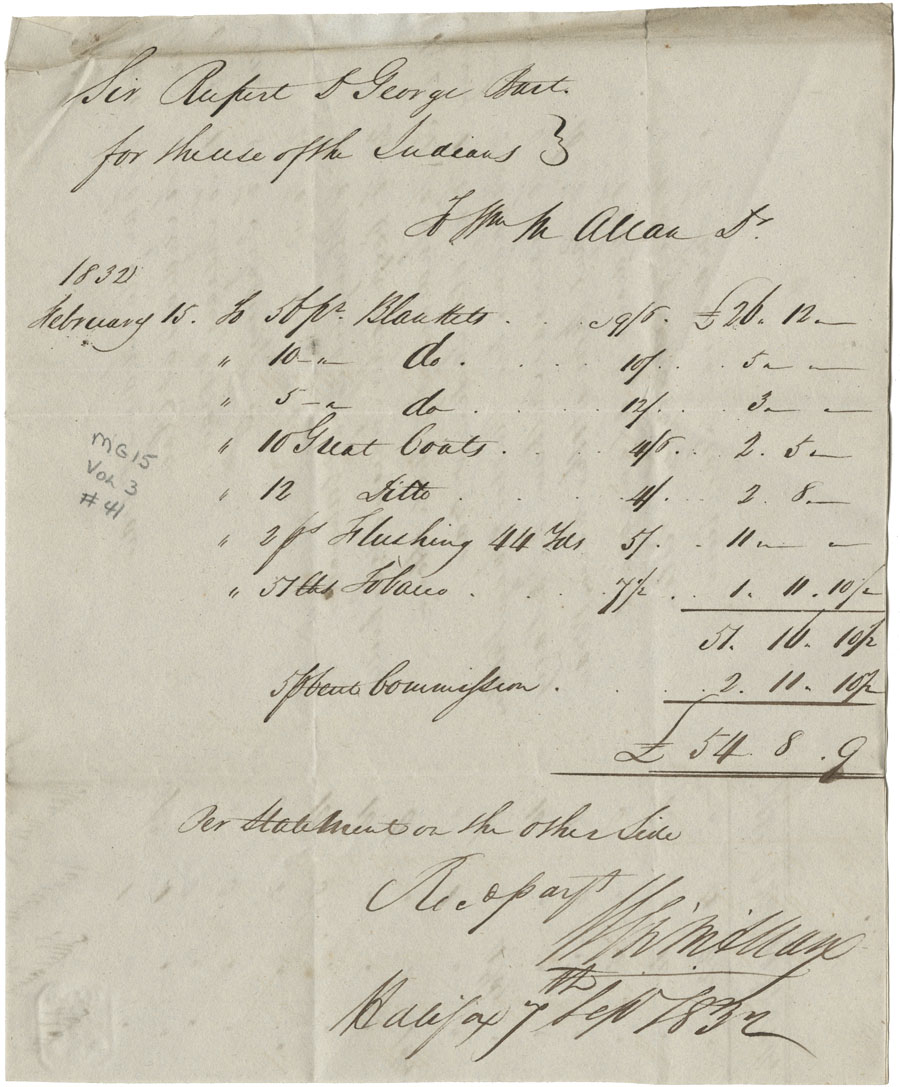 Sir Rupert D George Bart.
for the use of the Indians }
To Wm M Allan Dr.
1832
February 15. To 56 pr. Blankets . . . 9/6 . £ 26. 12. —
" 10 — " do . . . . 10/ . . 5 " — " —
" 5 — " do . . . . 12/ . . 3 " — " —
" 10 Great Coats . . . . 4/6 . . 2. 5 " —
" 12 Ditto . . . . 4/ . . 2. 8. —
" 2 ps Flushing 44 Yds 5/ . . 11 " — " —
" 51 lbs Tobacco . . . . 7½ . . 1. 11. 10½
51. 16. 10½
5 p Cent Commission . . . . 2. 11. 10½
£ 54. 8. 9
Per Statement on the other Side
Recd paryt
Wm M Allan
Halifax 7th Sepr 1832
MG15
Vol 3
#41